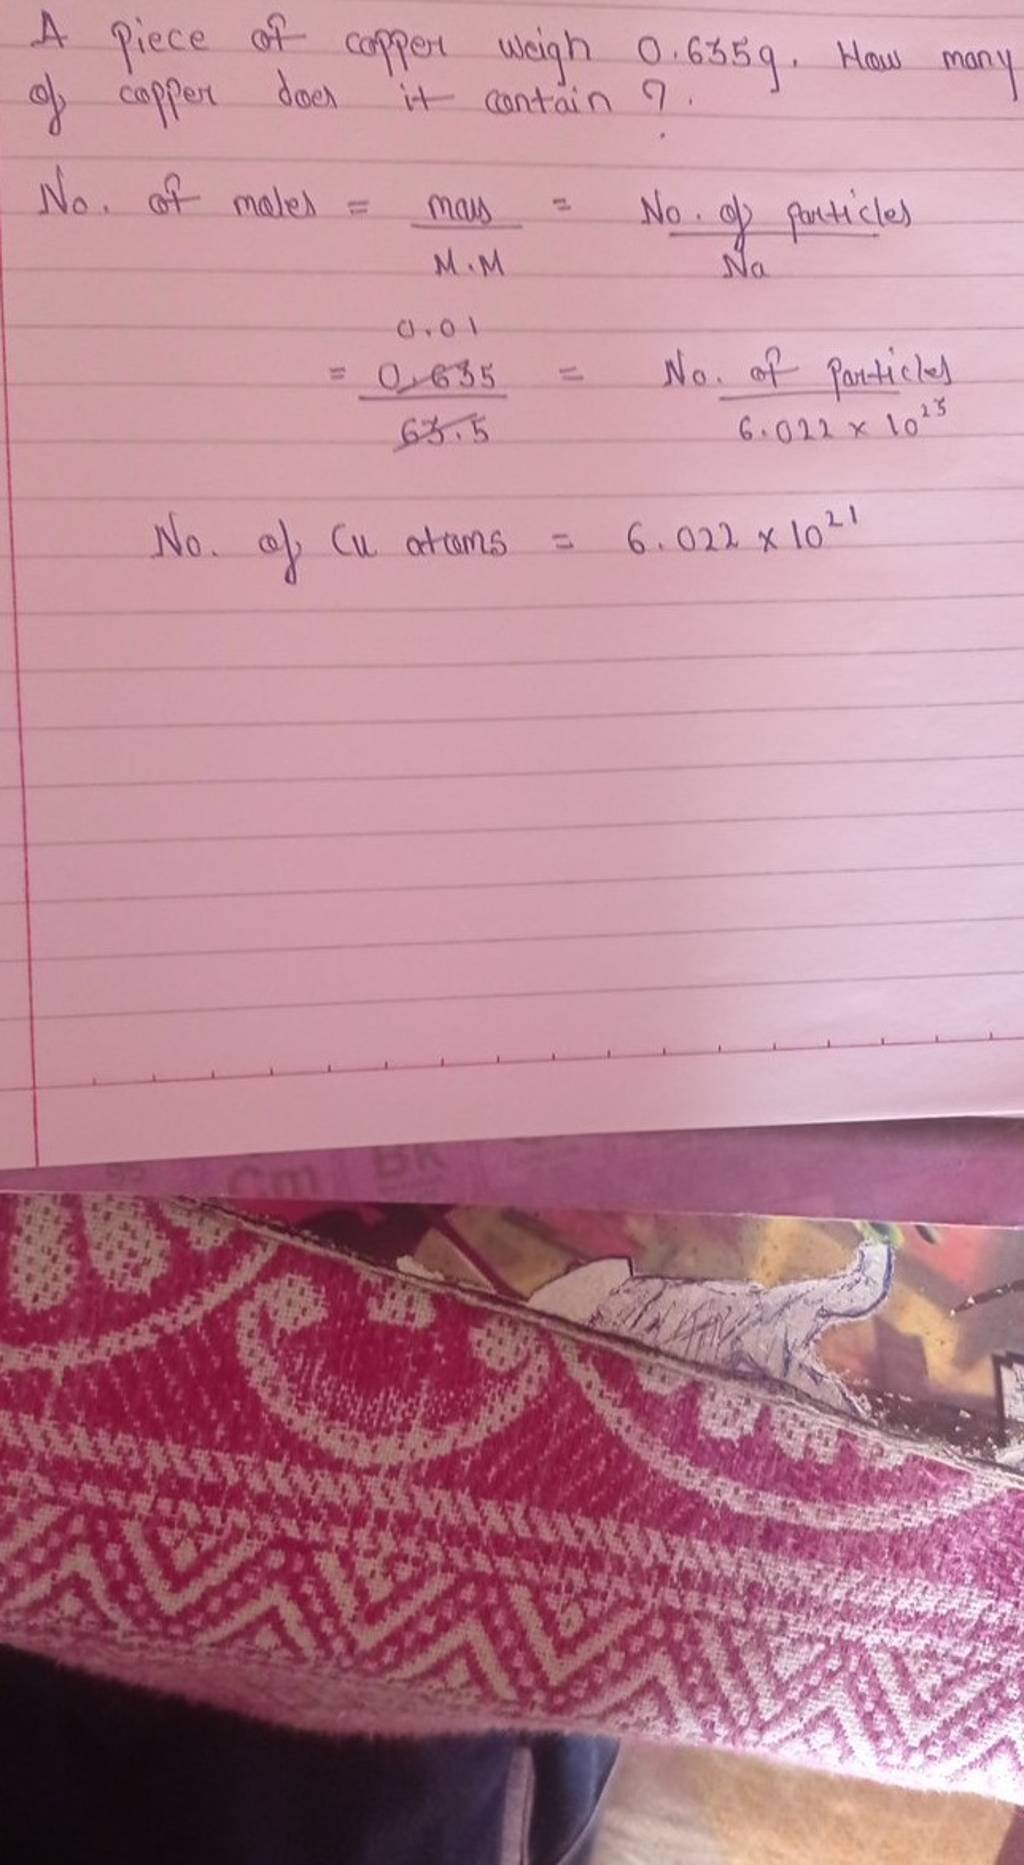 A piece of copper weigh 0.635g. How many
of copper does it contain ?.
No. of moles = mass = No. of particles
M.M Na
0.01
= 0.635 = No. of particles
63.5 6.022 x 10²³
No. of Cu atoms = 6.022 x 10²¹
Cm Bk